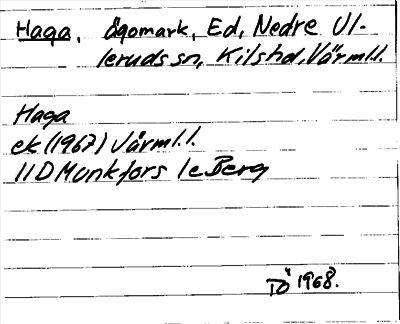 Haga, ägomark, Ed, Nedre Ul-
leruds sn, Kilshd, Värml.l.
Haga
ek (1967) Värml.l.
11D Munkfors 1e Berg
TÖ 1968.